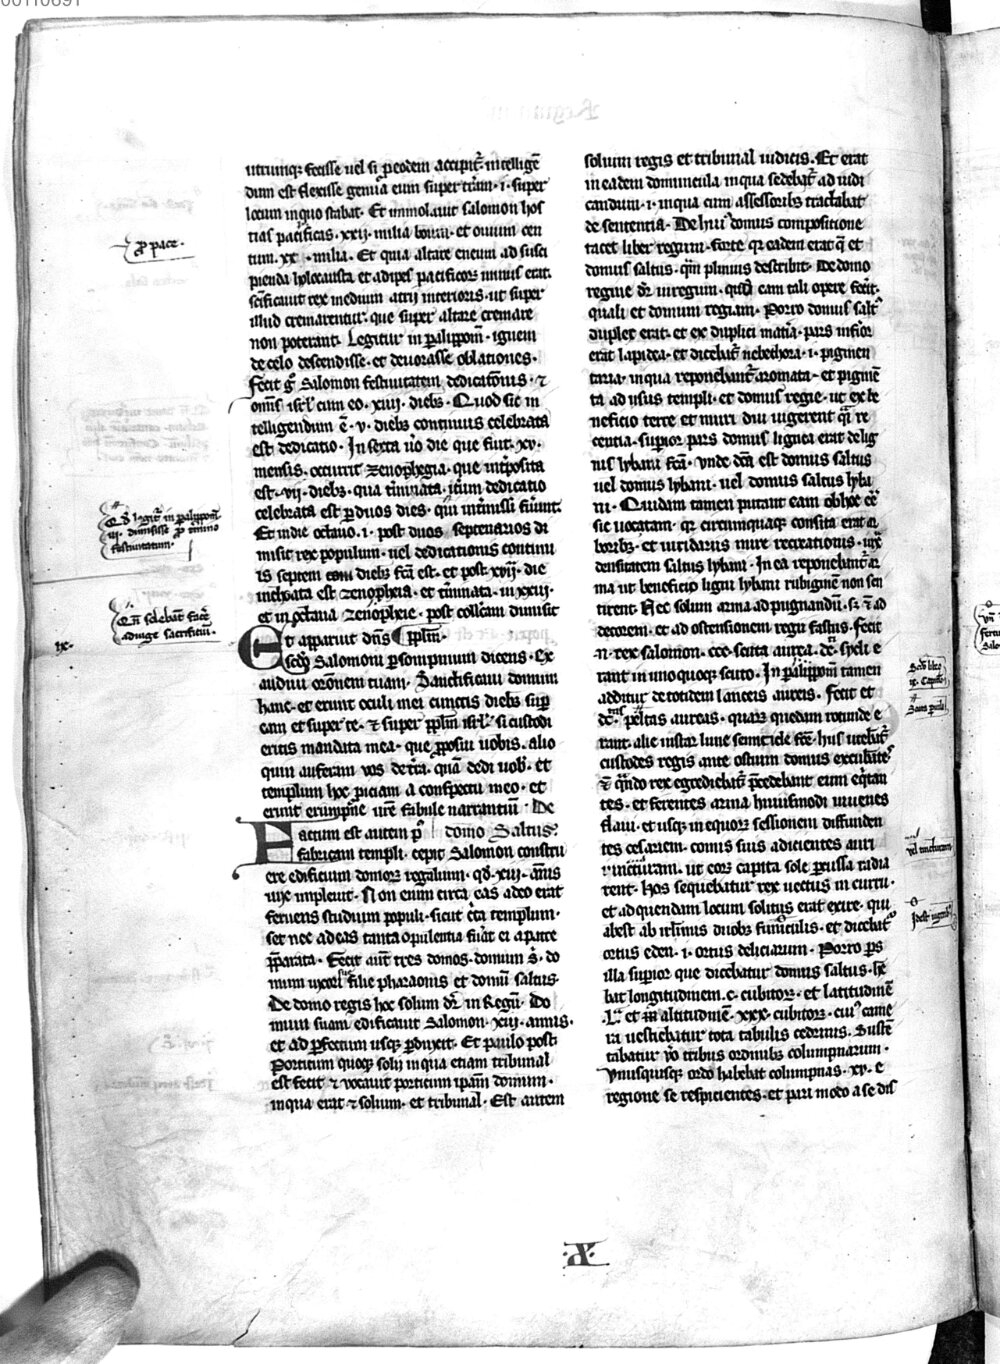 00110691
utrumque fecisse uel si p eodem accipit᷑ intellige᷑
dum est flexisse genua eum super t᷑ram · i · super
locum in quo stabat · Et immolauit salomon hos
tias pacificas · xxij · milia bouum · et ouium cen
tum · xx · milia · Et quia altare eneum ad susci
pienda holocausta et adipes pacificoꝝ minus erat ·
sc̄ificauit rex medium atrij interioris · ut super
illud cremarentur · que super altare cremare
non poterant · Legitur in palippom̄ · ignem
de celo descendisse · et deuorasse oblationes ·
Fecit gͦ Salomon festiuitatem dedicat̄onis · ⁊
om̄is isrl̓ cum eo · xiiij · diebꝫ · Quod sic in
telligendum ē · v · diebꝫ continuis celebrata
est dedicatio · In sexta ūo die que fuit · xv ·
mensis · occurrit zenophegia · que int᷑posita
est · vij · diebꝫ · qua t᷑minata · it᷑um dedicatio
celebrata est ꝑ duos dies · qui int᷑missi fu᷑unt ·
Et in die octauo · i · post duos septenarios di
misit rex populum · uel dedicationis continu
is septem diebꝫ fc̄a est · et post xvij · die
inchoata est zenophegia · et t᷑minata · in xxiij ·
et in octaua zenophegie · post collectam dimisit
Et apparuit dn̄s ppl̄m ·
sc̄do Salomoni ꝑ sompnium dicens · Ex
audiui or̄onem tuam · Sanctificaui domum
hanc · et erunt oculi mei cunctis diebꝫ suꝑ
eam et super te · ⁊ super ppl̄m isrl̓ · si custodi
eritis mandata mea · que ꝓposui uobis · alio
quin auferam uos de t᷑ra · quā dedi uob̄ · et
templum hoc ꝓiciam a conspectu meo · et
erunt ur̄e fabule narrantiū · De
Factum est autem pͦ domo Saltus ·
fabricam templi · cepit Salomon constru
ere edificium domoꝝ regalium · qd̄ · xiij · annis
uix impleuit · Non enim circa eas adeo erat
feruens studium populi · sicut c᷑ca templum ·
set nec ad eas tanta opulentia fu᷑at ei a patre
p̄parata · Fecit aūt tres domos · domum s̄ · do
mum uxori sue filie pharaonis et domū saltus ·
De domo regis hoc solum dr̄ in Regū · Do
mum suam edificauit Salomon · xiij · annis ·
et ad ꝑfectum usqꝫ ꝑduxit · Et paulo post ·
Porticum quoqꝫ solij in qua etiam tribunal
est fecit ⁊ vocauit porticum ip̄am domum ·
in qua erat ⁊ solium · et tribunal · Est autem
solium regis et tribunal iudicis · Et erat
in eadem domuncula in qua sedebat᷑ ad iudi
candum · i · in qua cum assessoribꝫ tractabat
de sententia · De hui᷒ domus compositione
tacet liber regum · forte qꝛ eadem erat q̄ et
domus saltus · qm̄ plenius describit · De domo
regine dr̄ in regum · quod eam tali opere fecit ·
quali et domum regiam · Porro domus salt᷒
duplex erat · et ex duplici mat᷑ia · pars inf᷑ior
erat lapidea · et dicebat᷑ nechothera · i · pigmen
taria · in qua reponebant᷑ aromata · et pigmē
ta ad usus templi · et domus regie · ut ex be
neficio terre et muri diu uigerent
suꝑior pars domus lignea erat de lig
nis lybani fc̄a · Vnde dc̄a est domus saltus
uel domus lybani · uel domus saltus lyba
ni · Quidam tamen putant eam ob hoc eē
sic uocatam · qꝛ circumquaqꝫ consita erat ar
boribꝫ · et uiridariis mire recreationis · iux̄
densitatem saltus lybani · In ea reponebant᷑ ar
ma ut beneficio ligni lybani rubiginē non sen
tirent · Nec solum arma ad pugnandū · sꝫ ⁊ ad
decorem · et ad ostensionem regij fastus · Fecit
n̄ · rex salomon · ccc · scuta aurea · de
rant in uno quoqꝫ scuto · In palippom̄ tamen
additur de totidem lanceis aureis · Fecit et
peltas aureas · quaꝝ quedam rotunde e
rant · alie instar lune semicicle fc̄e · hiis utebant᷑
custodes regis ante ostium domus excubātes
⁊ qn̄do rex egrediebat᷑ p̄cedebant eum eq̄tan
tes · et ferentes arma huiusmodi iuuenes
flaui · et usqꝫ in equoꝝ sessionem diffunden
tes cesariem · comis suis adicientes auri
rincturam · ut eoꝝ capita sole ꝑcussa radia
rent · Hos sequebatur rex uectus in curru ·
et ad quendam locum solitus erat exire · qui
abest ab ir̄lmis duobꝫ funiculis · et dicebat᷑
ortus eden · i · ortus deliciarum · Porro ꝑs
illa suꝑior que dicebatur domus saltus · hē
bat longitudinem · c · cubitoꝝ · et latitudinē
· L · et in altitudinē · xxx · cubitoꝝ · cui᷒ came
ra uestiebatur tota tabulis cedrinis · Sustē
tabatur ūo tribus ordinibꝫ columpnarum ·
Vnusquisqꝫ ordo habebat columpnas · xv · e
regione se respicientes · et pari modo a se dis
ꝓ pace ·
Qd̄ legit᷑ in palippom̄
iij · dimisisse ꝓ t᷑mino
festiuitatum ·
Qn̄ solebant fac᷑e
adiuge sacrificiū ·
ix ·
vel tincturam
· X ·